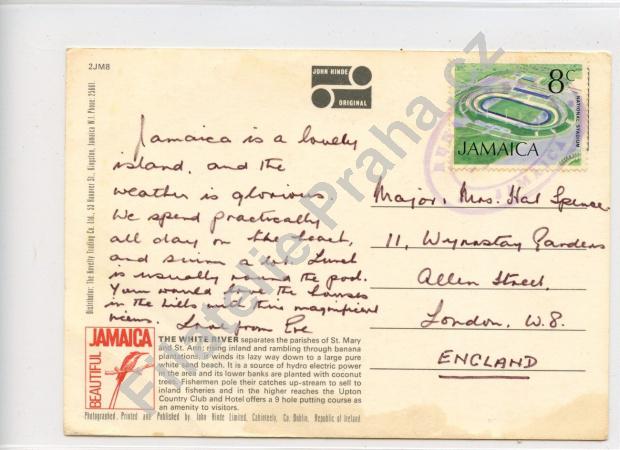 2JM8
JOHN HINDE
ORIGINAL
8c
NATIONAL STADIUM
JAMAICA
Distributor: The Novelty Trading Co. Ltd., 53 Hanover St., Kingston, Jamaica W.I. Phone: 25661.
Jamaica is a lovely
island, and the
weather is glorious.
We spend practically
all day on the beach,
and swim a lot. Lunch
is usually round the pool.
Yum would love the houses
in the hills with this magnificent
views. Love from Eve
Major, Mrs. Hal Spencer
11, Wynnstay Gardens
Allen Street.
London. W.8.
ENGLAND
BEAUTIFUL JAMAICA
THE WHITE RIVER separates the parishes of St. Mary
and St. Ann; rising inland and rambling through banana
plantations, it winds its lazy way down to a large pure
white sand beach. It is a source of hydro electric power
in the area and its lower banks are planted with coconut
trees. Fishermen pole their catches up-stream to sell to
inland fisheries and in the higher reaches the Upton
Country Club and Hotel offers a 9 hole putting course as
an amenity to visitors.
Photographed, Printed and Published by John Hinde Limited, Cabinteely, Co. Dublin, Republic of Ireland
Filatelie Praha.cz